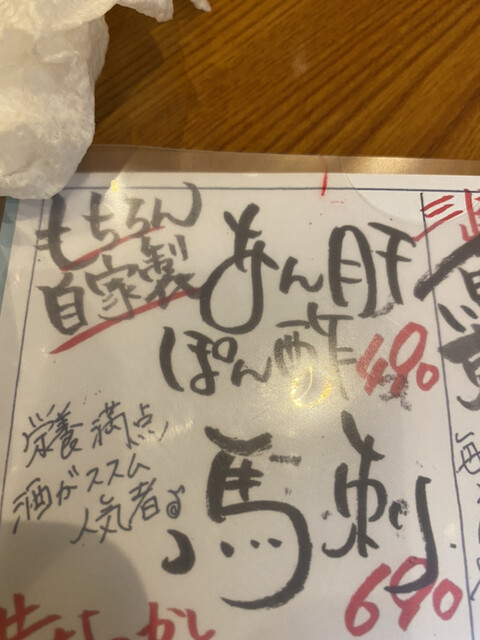 もちろん
自家製
あん肝
ぽん酢 490
栄養満点
酒がススム
人気者
馬刺
690